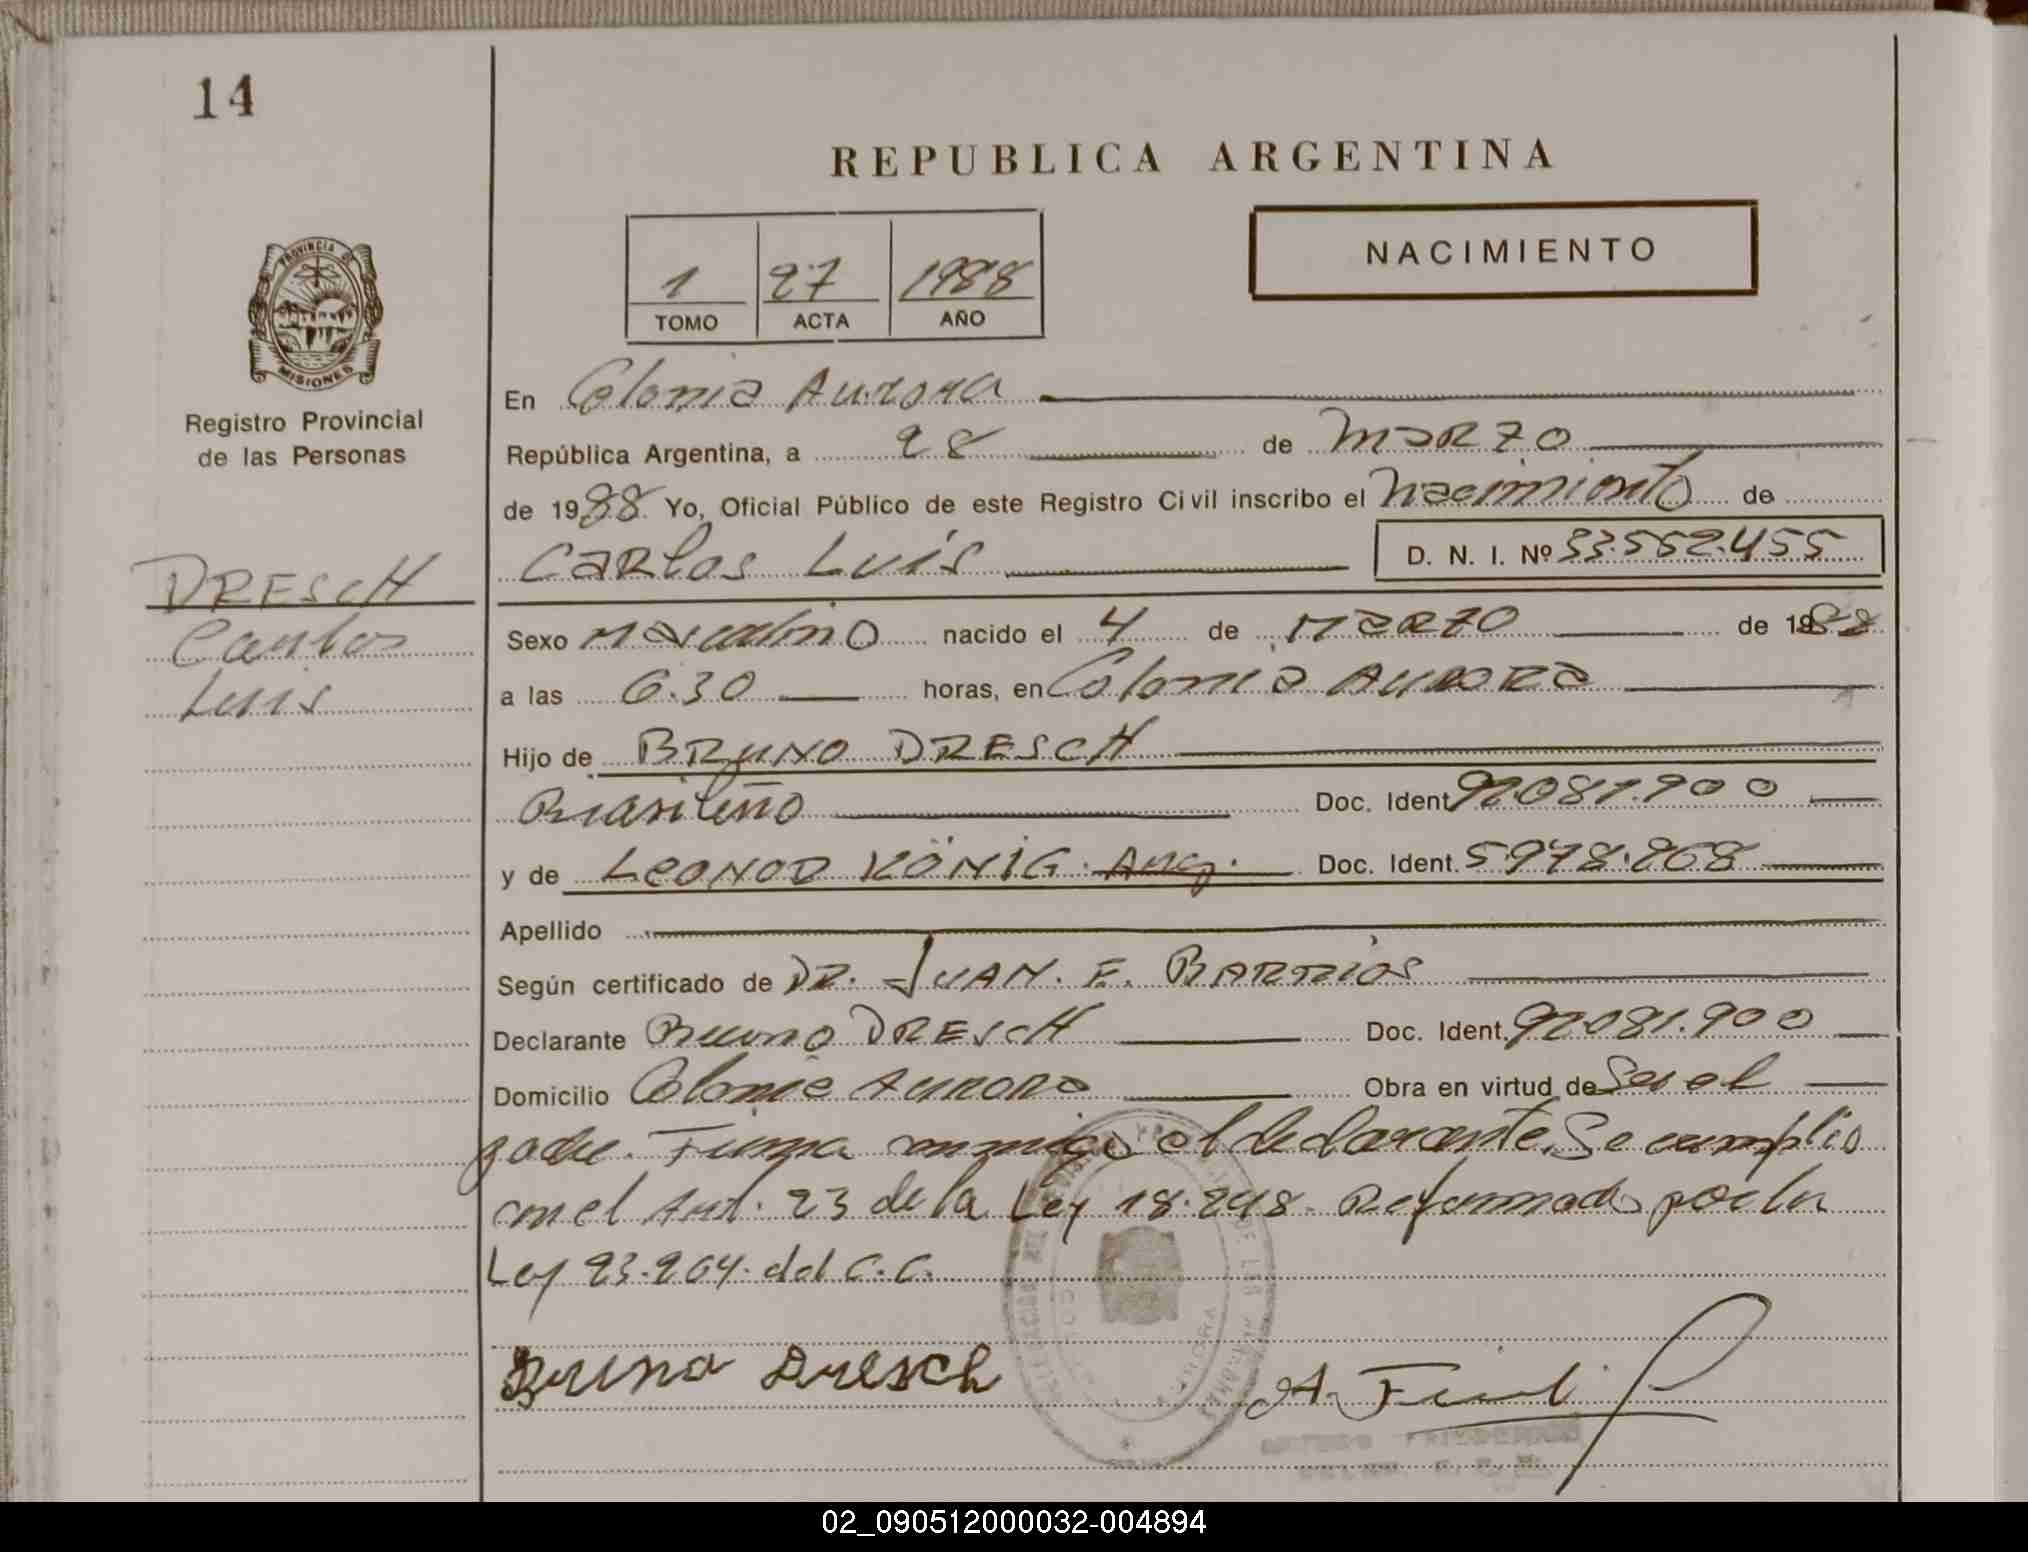 14
REPUBLICA ARGENTINA
NACIMIENTO
1 27 1988
TOMO ACTA AÑO
PROVINCIA DE
MISIONES
Registro Provincial
de las Personas
En Colonia Aurora
República Argentina, a 28 de Marzo
de 1988 Yo, Oficial Público de este Registro Civil inscribo el Nacimiento de
Carlos Luis D. N. I. Nº 33.552.455
DRESCH
Carlos
Luis
Sexo Masculino nacido el 4 de Marzo de 1988
a las 6.30 horas, en Colonia Aurora
Hijo de BRUNO DRESCH
Brasileño Doc. Ident. 92.081.900
y de LEONOR KÖNIG. Arg. Doc. Ident. 5.978.868
Apellido
Según certificado de DR. JUAN. E. BARRIOS
Declarante Bruno DRESCH Doc. Ident. 92.081.900
Domicilio Colonia Aurora Obra en virtud de Ser el
padre. Firma conmigo el declarante. Se cumplio
con el Art. 23 de la Ley 18.248. Reformado por la
Ley 23.264. del C.C.
Bruno Dresch
02_090512000032-004894